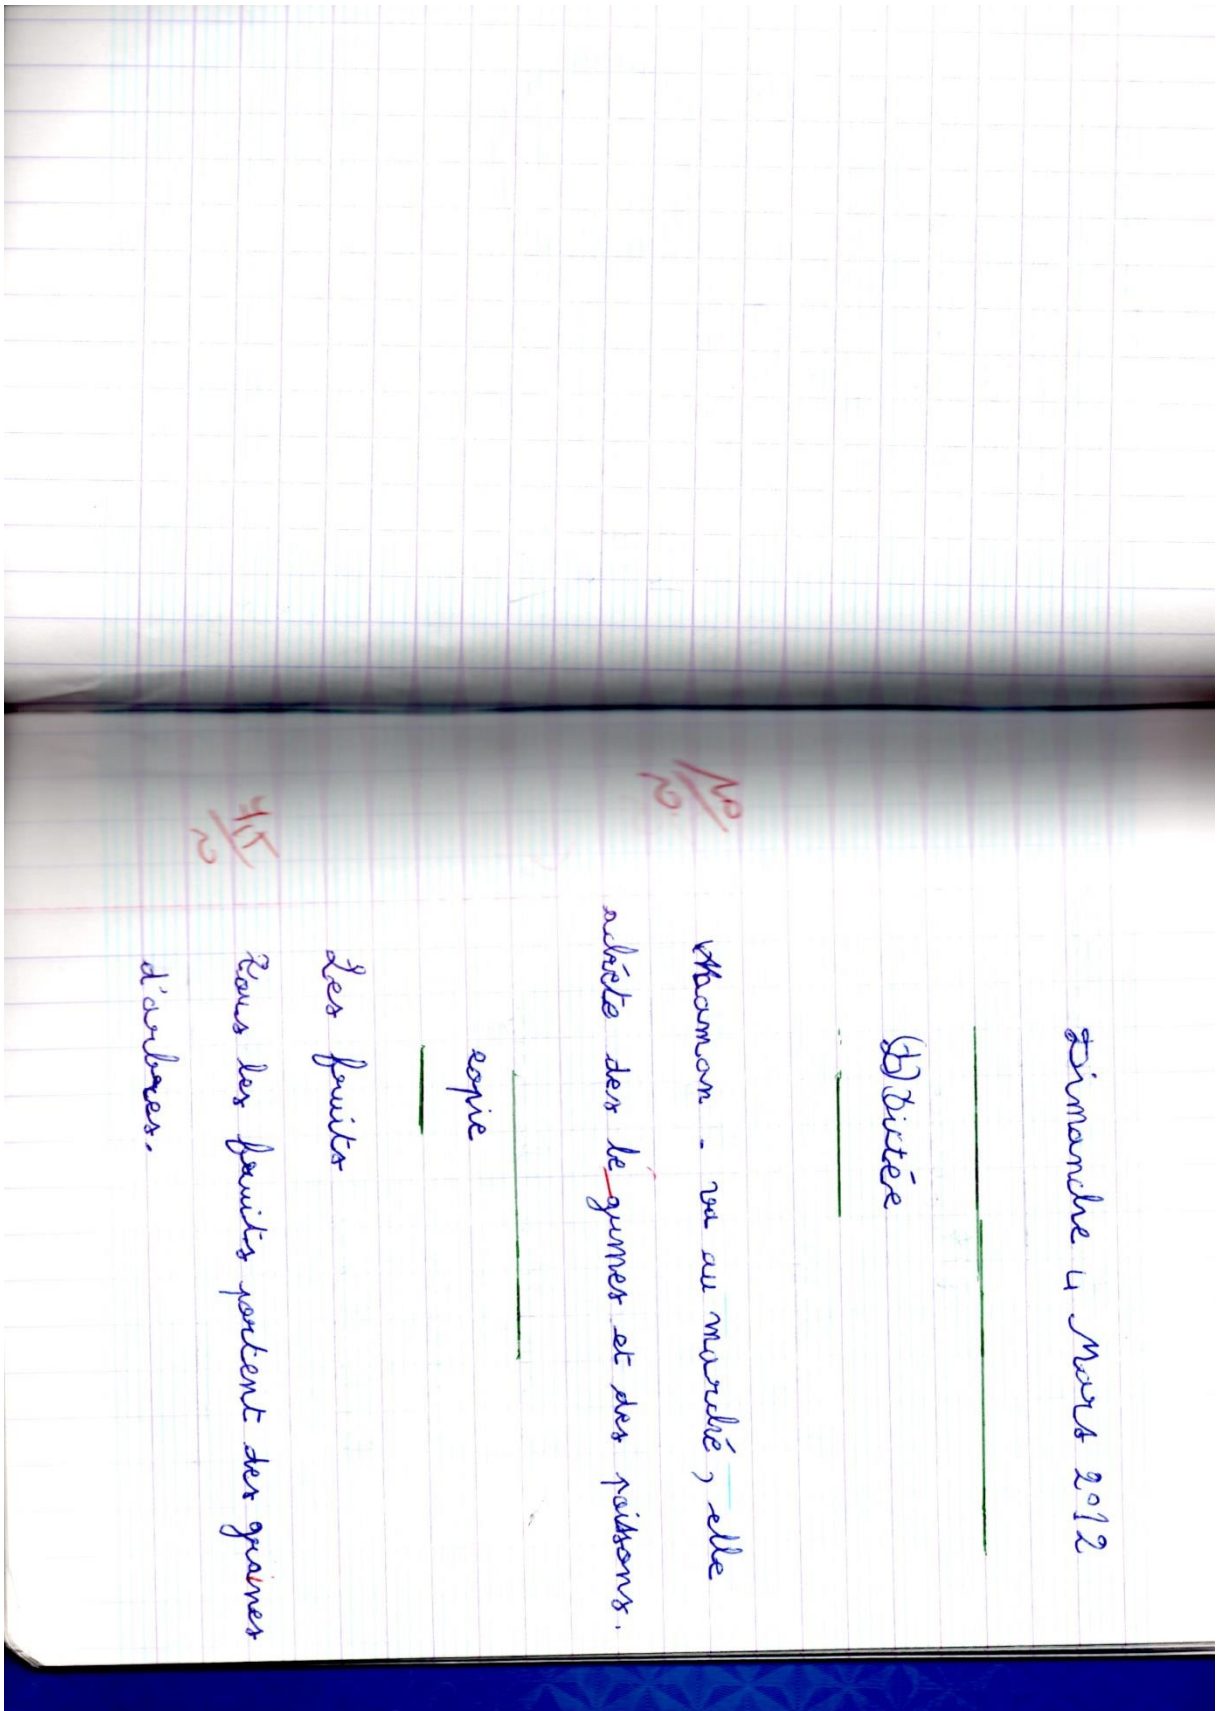 Dimanche 4 Mars 2012
(D) Dictée
Maman - va au marché, elle
achète des lé gumes et des poissons.
copie
Les fruits
Tous les fruits portent des graines
d'arbres.